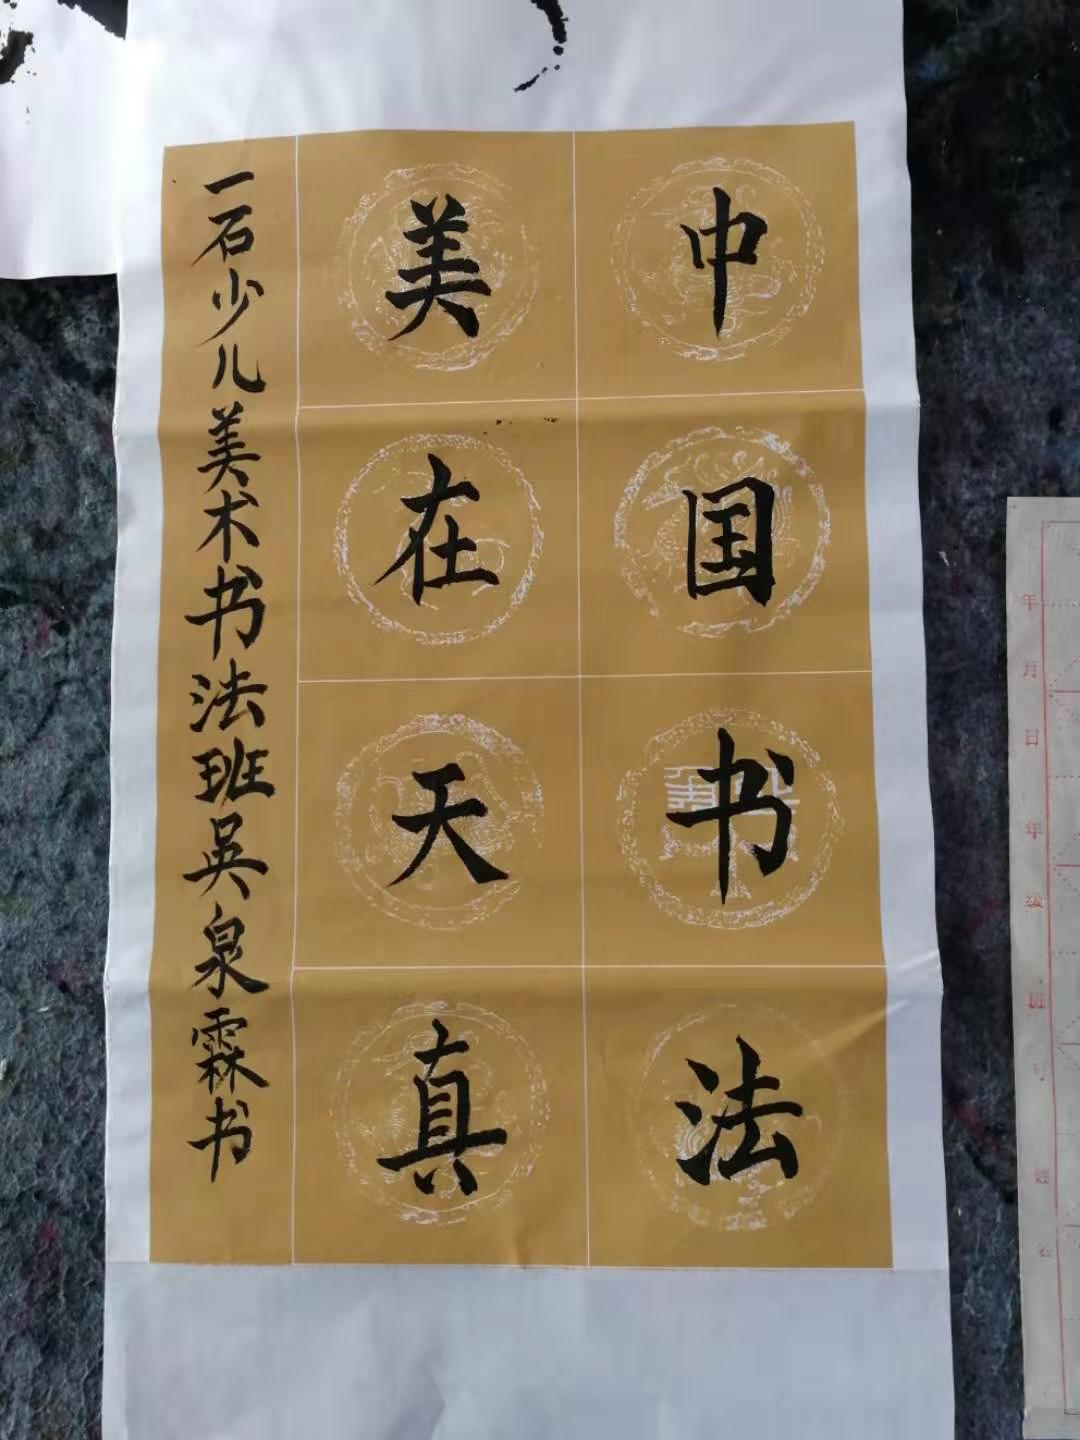 中国书法
美在天真
一石少儿美术书法班吴泉霖书
年月日年级班号姓名